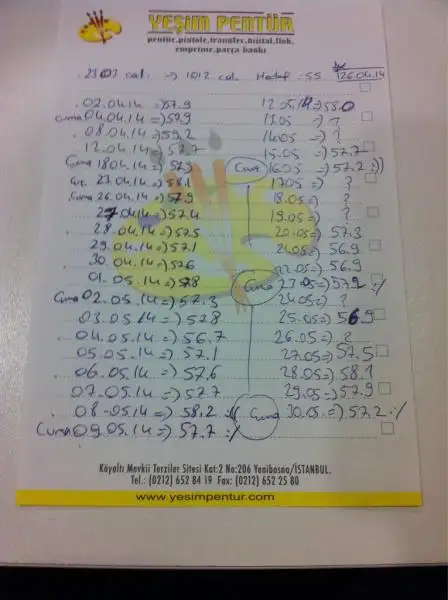 YEŞİM PENTÜR
pentür,pistole,transfer,dijital,flok,
emprime,parça baskı
1012 cal. Hedef : 55 26.04.14
02.04.14 => 57.9
Cuma 04.04.14 => 57.9
08.04.14 => 59.2
12.04.14 => 57.7
Cuma 18.04.14 =>
27.04.14 => 58.1
Cuma 26.04.14 => 57.9
27.04.14 => 57.4
28.04.14 => 57.5
29.04.14 => 57.1
30.04.14 => 57.6
01.05.14 => 57.8
Cuma 02.05.14 => 57.3
03.05.14 => 57.8
04.05.14 => 56.7
05.05.14 => 57.1
06.05.14 => 57.6
07.05.14 => 57.7
08.05.14 => 58.2 :((
Cuma 09.05.14 => 57.7 :/
12.05.14 => 58.0
13.05 => ?
14.05 => ?
15.05 => 57.7
Cuma 16.05 => 57.2 :))
17.05 => ?
18.05 => ?
19.05 => ?
20.05 => 57.3
21.05 => 56.9
22.05 => 56.9
Cuma 23.05 => 57.2 :/
24.05 => ?
25.05 => 56.9
26.05 => ?
27.05 => 57.5
28.05 => 58.1
29.05 => 57.9
Cuma 30.05 => 57.2 :/
Köyaltı Mevkii Terziler Sitesi Kat:2 No:206 Yenibosna/İSTANBUL.
Tel.: (0212) 652 84 19 Fax: (0212) 652 25 80
www.yesimpentur.com